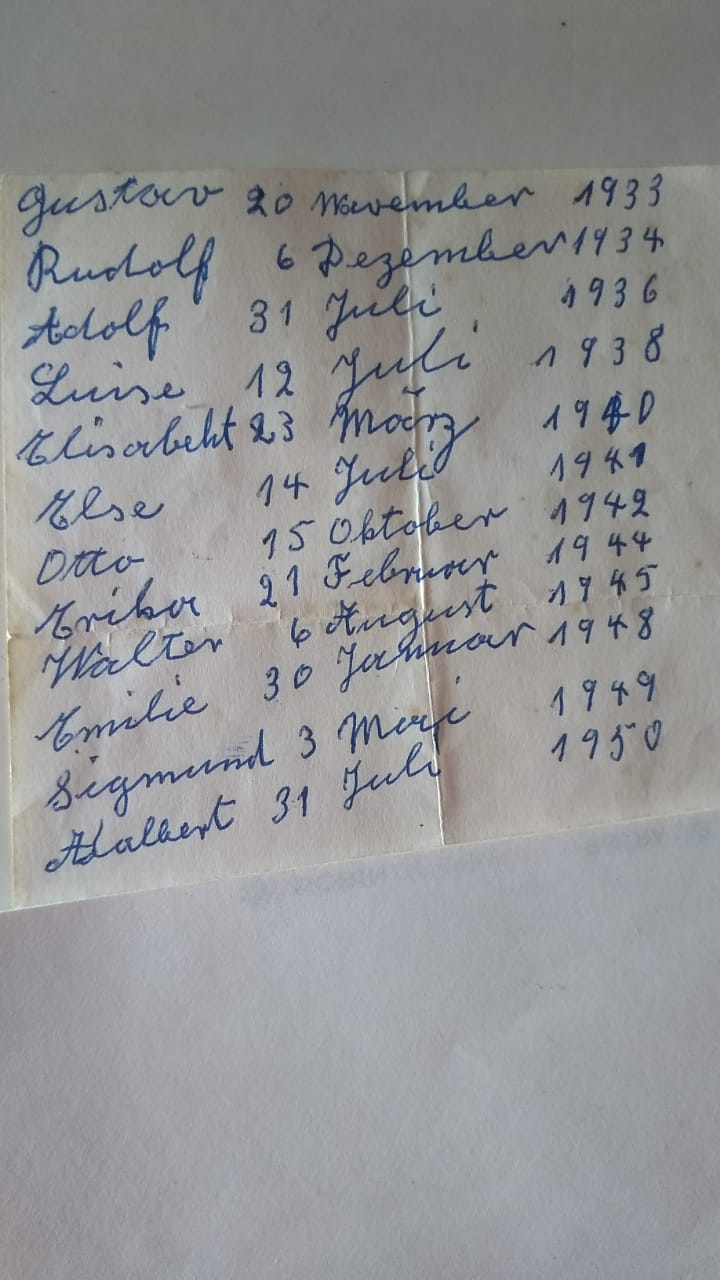 Gustav 20 November 1933
Rudolf 6 Dezember 1934
Adolf 31 Juli 1936
Luise 12 Juli 1938
Elisabeht 23 März 1940
Else 14 Juli 1941
Otto 15 Oktober 1942
Erika 21 Februar 1944
Walter 6 August 1945
Emilie 30 Januar 1948
Sigmund 3 Mai 1949
Adalbert 31 Juli 1950